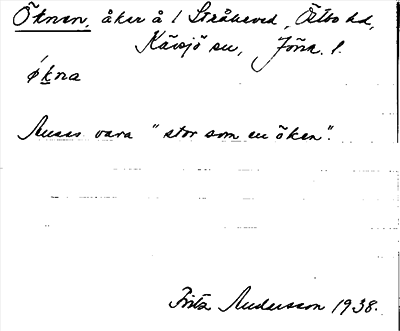 Öknen, åker å 1 Stråkeved, Östbo hd,
Kävsjö sn, Jönk. l.
ǿkna
Anses vara "stor som en öken".
Fritz Andersson 1938.